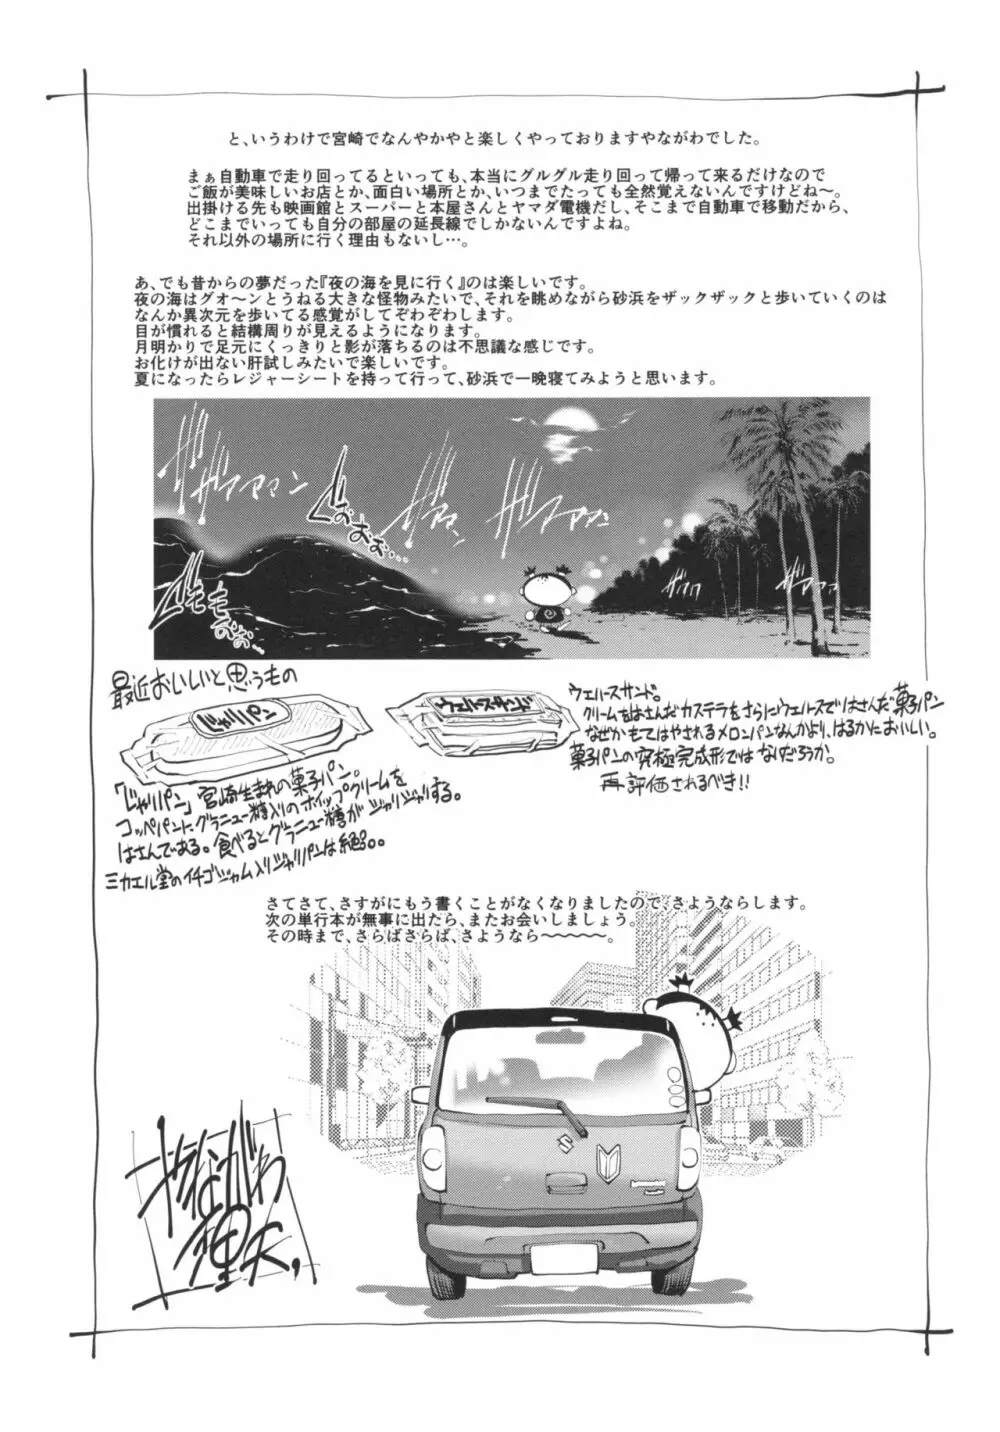 と、いうわけで宮崎でなんやかやと楽しくやっておりますやながわでした。
まぁ自動車で走り回ってるといっても、本当にグルグル走り回って帰って来るだけなので
ご飯が美味しいお店とか、面白い場所とか、いつまでたっても全然覚えないんですけどね〜。
出掛ける先も映画館とスーパーと本屋さんとヤマダ電機だし、そこまで自動車で移動だから、
どこまでいっても自分の部屋の延長線でしかないんですよね。
それ以外の場所に行く理由もないし…。
あ、でも昔からの夢だった『夜の海を見に行く』のは楽しいです。
夜の海はグオ〜ンとうねる大きな怪物みたいで、それを眺めながら砂浜をザックザックと歩いていくのは
なんか異次元を歩いてる感覚がしてぞわぞわします。
目が慣れると結構周りが見えるようになります。
月明かりで足元にくっきりと影が落ちるのは不思議な感じです。
お化けが出ない肝試しみたいで楽しいです。
夏になったらレジャーシートを持って行って、砂浜で一晩寝てみようと思います。
最近おいしいと思うもの
じゃりパン
「じゃりパン」宮崎生まれの菓子パン。
コッペパンに、グラニュー糖入りのホイップクリームを
はさんである。食べるとグラニュー糖がジャリジャリする。
ミカエル堂のイチゴジャム入りジャリパンは絶品。
ウエハースサンド
ウエハースサンド。
クリームをはさんだカステラをさらにウエハースではさんだ菓子パン
なぜかもてはやされるメロンパンなんかより、はるかにおいしい。
菓子パンの究極完成形ではないだろうか。
再評価されるべき!!
さてさて、さすがにもう書くことがなくなりましたので、さようならします。
次の単行本が無事に出たら、またお会いしましょう。
その時まで、さらばさらば、さようなら〜〜〜〜〜。
やながわ
理央,